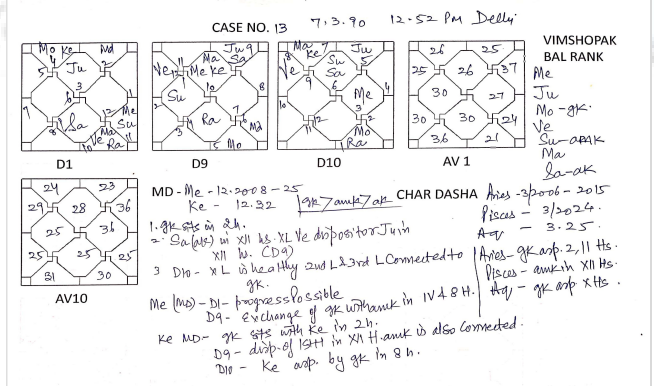 CASE NO. 13 7.3.90 12-52 PM Delhi
VIMSHOPAK
BAL RANK
Me
Ju
Mo - gk
Ve
Su - apak
Ma
Sa - ak
Mo Ke Md
4 2
5 Ju
3
6
9 Sa 12 Me
8 Su
Ve Ma
10 Ra 11
D1
Ju 9
Ma Sa
Ve 12 11 Me Ke 8
Su 10
Ra 7
6 Md
3 4 5 Mo
D9
Ma Ke 7 Ju
8 Su 5
Ve Sa
9 6 4
10 Me
3
11 12 2
Mo
1 Ra
D10
26 25
25 26 37
30 27
30 30 24
36 21
AV 1
24 23
29 28 36
25 36
25 25 25
31 30
AV10
MD - Me - 12.2008 - 25
Ke - 12.32
gk 7 amk 7 ak
CHAR DASHA Aries - 3/2006 - 2015
Pisces - 3/2024.
Aq - 3.25.
1. gk sits in 2h.
2. Sa (ak) in XII hs. XL Ve dispositor Ju in
XII h. (D9)
3 D10 - XL is healthy 2nd L & 3rd L Connected to
gk.
Aries - gk asp. 2, 11 Hs.
Pisces - amk in XII Hs.
Aq - gk asp X Hs.
Me (MD) - D1 - progress Possible
D9 - Exchange of gk with amk in IV & 8 H.
Ke MD - gk sits with Ke in 2h.
D9 - disp. of ISHT in XII H. amk is also Connected.
D10 - Ke asp. by gk in 8 h.